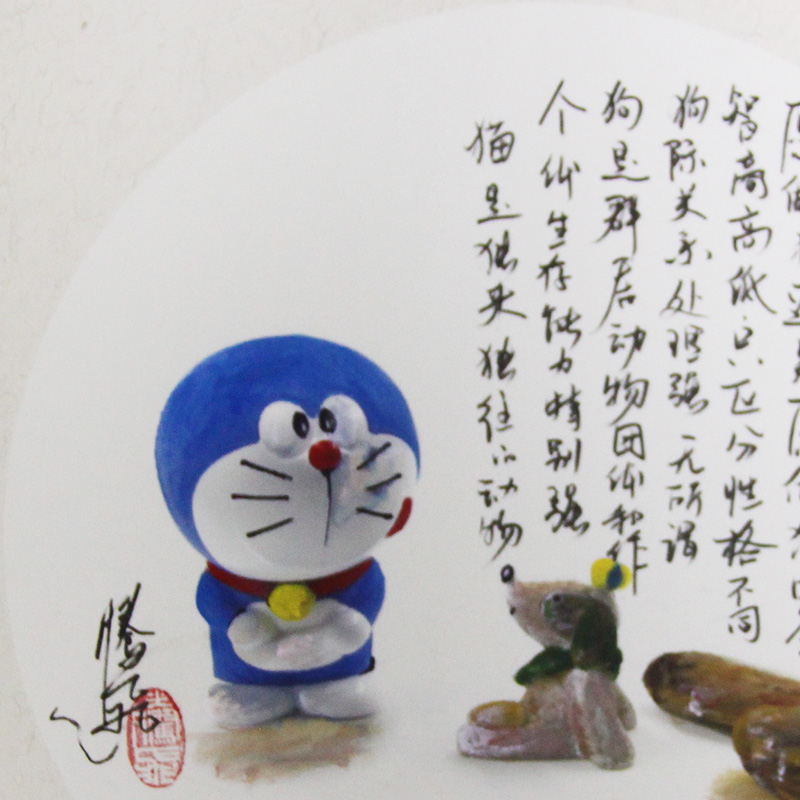 猫是独来独往的动物
个体生存能力特别强
狗是群居动物团体和作
狗际关系处理强 无所谓
智商高低只区分性格不同